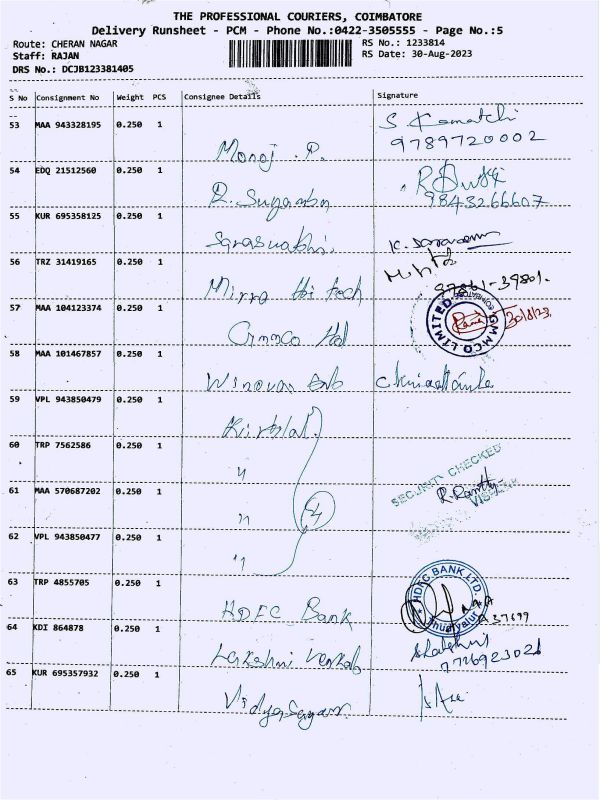 THE PROFESSIONAL COURIERS, COIMBATORE
Delivery Runsheet - PCM - Phone No.:0422-3505555 - Page No.:5
Route: CHERAN NAGAR RS No.: 1233814
Staff: RAJAN RS Date: 30-Aug-2023
DRS No.: DCJB123381405
S No Consignment No Weight PCS Consignee Details Signature
53 MAA 943328195 0.250 1 Manoj . P. S Kamatchi
9789720002
54 EDQ 21512560 0.250 1 R. Suganthy
9843266607
55 KUR 695358125 0.250 1
56 TRZ 31419165 0.250 1 Mirra Hi tech
97861-39801.
57 MAA 104123374 0.250 1 Gmmco Ltd GMMCO LIMITED COIMBATORE 30/8/23
58 MAA 101467857 0.250 1
59 VPL 943850479 0.250 1
60 TRP 7562586 0.250 1 "
SECURITY CHECKED
61 MAA 570687202 0.250 1 " 4
62 VPL 943850477 0.250 1 "
63 TRP 4855705 0.250 1 HDFC Bank HDFC BANK LTD. Thudiyalur
A37699
64 KDI 864878 0.250 1 Lakshmi Venkab
7726923026
65 KUR 695357932 0.250 1 Vidyasagar